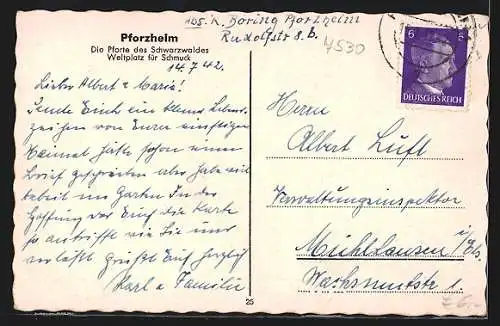 Pforzheim
Die Pforte des Schwarzwaldes
Weltplatz für Schmuck
14.7.42.
Abs. K. Boring Pforzheim
Rudolfstr 8.b.
4530
6
DEUTSCHES REICH
Liebe Albert & Marie!
Sende Euch ein kleines Lebens-
zeichen von Eurer einstigen
Heimat hätte schon einen
Brief geschrieben aber habe viel
Arbeit im Garten In der
Hoffnung das Euch die Karte
so antrifft wie Sie uns
verläßt grüßt Euch herzlich
Karl & Familie
Herrn
Albert Luft
Verwaltungsinspektor
Mühlhausen i/Els.
Wachsmutstr 1
25